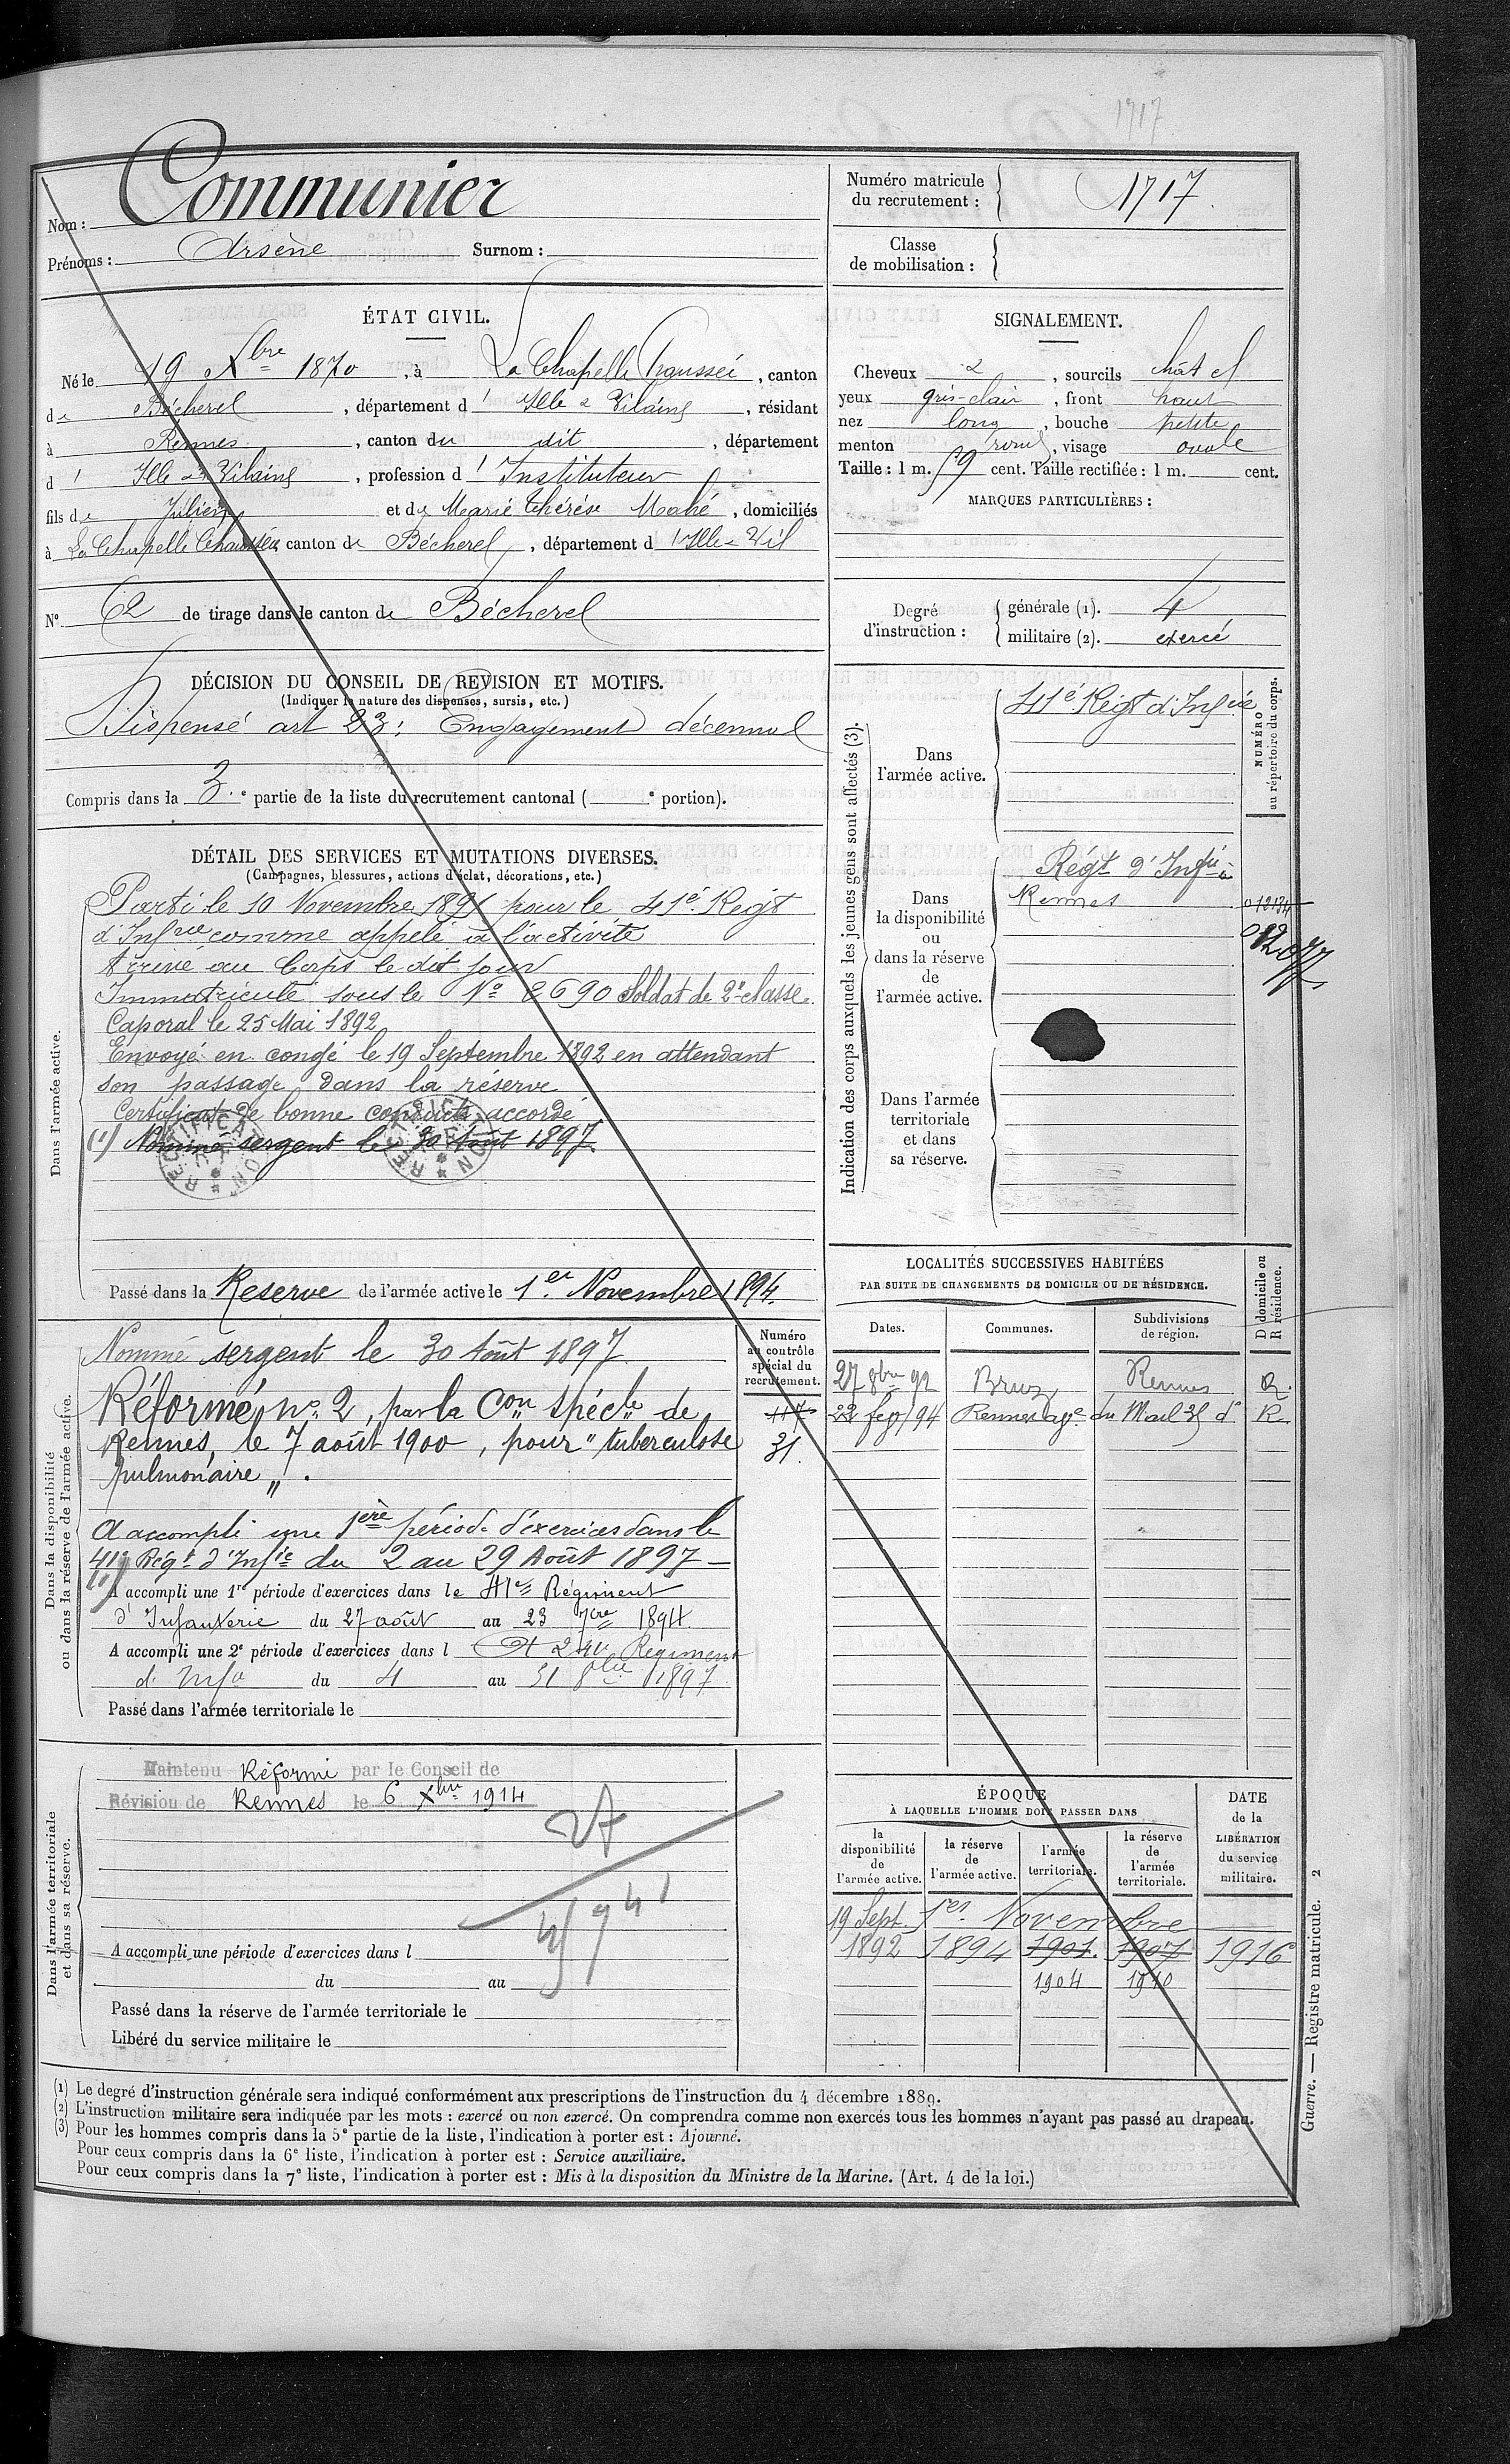 1717
Nom : Communier
Prénoms : Arsène Surnom :
Numéro matricule du recrutement : 1717.
Classe de mobilisation :
ÉTAT CIVIL.
Né le 19 Xbre 1870, à La Chapelle Chaussée, canton
de Bécherel, département d'Ille & Vilaine, résidant
à Rennes, canton du dit, département
d'Ille & Vilaine, profession d'Instituteur
fils de Julien et de Marie Thérèse Mahé, domiciliés
à La Chapelle Chaussée, canton de Bécherel, département d'Ille-&-Vil
N° 62 de tirage dans le canton de Bécherel
SIGNALEMENT.
Cheveux &, sourcils chât cl
yeux gris-clair, front haut
nez long, bouche petite
menton rond, visage ovale
Taille : 1 m. 59 cent. Taille rectifiée : 1 m. cent.
MARQUES PARTICULIÈRES :
Degré d'instruction :
générale (1). 4
militaire (2). exercé
DÉCISION DU CONSEIL DE REVISION ET MOTIFS.
(Indiquer la nature des dispenses, sursis, etc.)
Dispensé art 23: Engagement décennal
Compris dans la 3.e partie de la liste du recrutement cantonal ( e portion).
DÉTAIL DES SERVICES ET MUTATIONS DIVERSES.
(Campagnes, blessures, actions d'éclat, décorations, etc.)
Dans l'armée active.
Parti le 10 Novembre 1891 pour le 41e. Régt
d'Infrie comme appelé à l'activité
Arrivé au Corps le dit jour
Immatriculé sous le No 2690 Soldat de 2e classe.
Caporal le 25 Mai 1892
Envoyé en congé le 19 Septembre 1892 en attendant
son passage dans la réserve
Certificat de bonne conduite accordé
(1) Nommé sergent le 30 Août 1897.
RECTIFICATION
RECTIFICATION
Passé dans la Reserve de l'armée active le 1er Novembre 1894.
Indication des corps auxquels les jeunes gens sont affectés (3).
NUMÉRO au répertoire du corps.
Dans l'armée active.
41e Régt d'Infie
Dans la disponibilité ou dans la réserve de l'armée active.
Régt d'Infie à
Rennes
012134
Dans l'armée territoriale et dans sa réserve.
LOCALITÉS SUCCESSIVES HABITÉES
PAR SUITE DE CHANGEMENTS DE DOMICILE OU DE RÉSIDENCE.
D domicile ou R résidence.
Dates. Communes. Subdivisions de région.
27 8bre 92 Bruz Rennes R.
22 fév 94 Rennes age du Mail 35 do R
Dans la disponibilité ou dans la réserve de l'armée active.
Numéro au contrôle spécial du recrutement.
117
31.
Nommé sergent le 30 Août 1897
Réformé no. 2, par la Con spécle de
Rennes, le 7 août 1900, pour "tuberculose
pulmonaire„.
A accompli une 1ère période d'exercices dans le
41e Régt d'Infie du 2 au 29 Août 1897 —
A accompli une 1re période d'exercices dans le 41e Régiment
d'Infanterie du 27 août au 23 7bre 1894.
A accompli une 2e période d'exercices dans l 241 Régiment
d. Infie du 4 au 31 8bre 1897
Passé dans l'armée territoriale le
Dans l'armée territoriale et dans sa réserve.
Maintenu Réformé par le Conseil de
Révision de Rennes le 6 Xbre 1914
A accompli une période d'exercices dans l
du au
Passé dans la réserve de l'armée territoriale le
Libéré du service militaire le
ÉPOQUE
À LAQUELLE L'HOMME DOIT PASSER DANS
DATE de la LIBÉRATION du service militaire.
la disponibilité de l'armée active. la réserve de l'armée active. l'armée territoriale. la réserve de l'armée territoriale.
19 Sept. 1er Novembre
1892 1894 1901. 1907 1916
1904 1910
(1) Le degré d'instruction générale sera indiqué conformément aux prescriptions de l'instruction du 4 décembre 1889.
(2) L'instruction militaire sera indiquée par les mots : exercé ou non exercé. On comprendra comme non exercés tous les hommes n'ayant pas passé au drapeau.
(3) Pour les hommes compris dans la 5e partie de la liste, l'indication à porter est : Ajourné.
Pour ceux compris dans la 6e liste, l'indication à porter est : Service auxiliaire.
Pour ceux compris dans la 7e liste, l'indication à porter est : Mis à la disposition du Ministre de la Marine. (Art. 4 de la loi.)
Guerre. — Registre matricule. 2